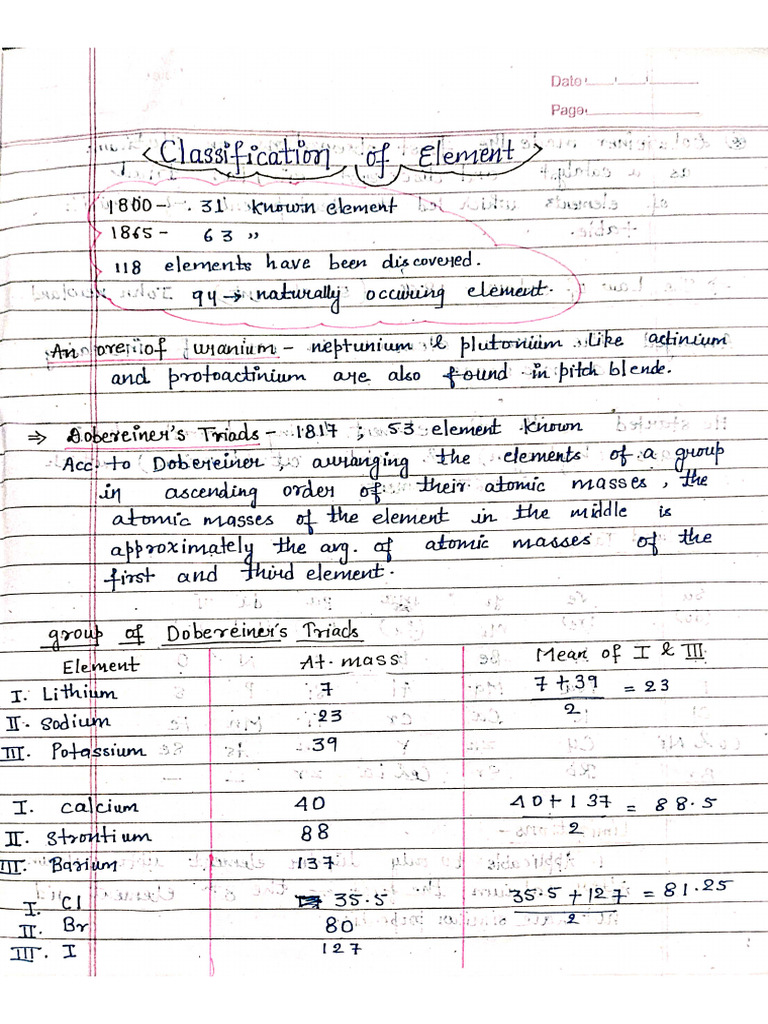 Date
Page
Classification of Element
1800 - 31 known element
1865 - 63 "
118 elements have been discovered.
94 → naturally occuring element.
An ore of uranium - neptunium & plutonium like actinium
and protoactinium are also found in pitch blende.
⇒ Dobereiner's Triads - 1817 ; 53 element known
Acc. to Dobereiner, arranging the elements of a group
in ascending order of their atomic masses, the
atomic masses of the element in the middle is
approximately the avg. of atomic masses of the
first and third element.
group of Dobereiner's Triads
Element At. mass Mean of I & III
I. Lithium 7 7 + 39 / 2 = 23
II. Sodium 23
III. Potassium 39
I. Calcium 40 40 + 137 / 2 = 88.5
II. Strontium 88
III. Barium 137
I. Cl 35.5 35.5 + 127 / 2 = 81.25
II. Br 80
III. I 127